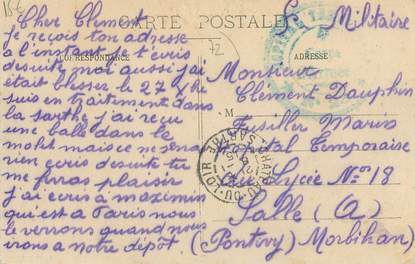 15€
CARTE POSTALE
S. Militaire
72
CORRESPONDANCE
ADRESSE
Cher Clement
je reçois ton adresse
a l'instant je t'ecris
desuite moi aussi j'ai
était blesser le 27 / he
suis en traitement dans
la sarthe j'ai reçu
une balle dans le
molet mais ce ne sera
rien ecris desuite tu
me feras plaisir
j'ai ecris a maximin
qui est a Paris nous
le verrons quand nous
irons a notre dépôt.
Monsieur
M
Clement Dauphin
Fusiller Marin
Hopital Temporaise
Lycée No 18
Salle (A)
(Pontivy) Morbihan
CHATEAU-DU-LOIR
SARTHE